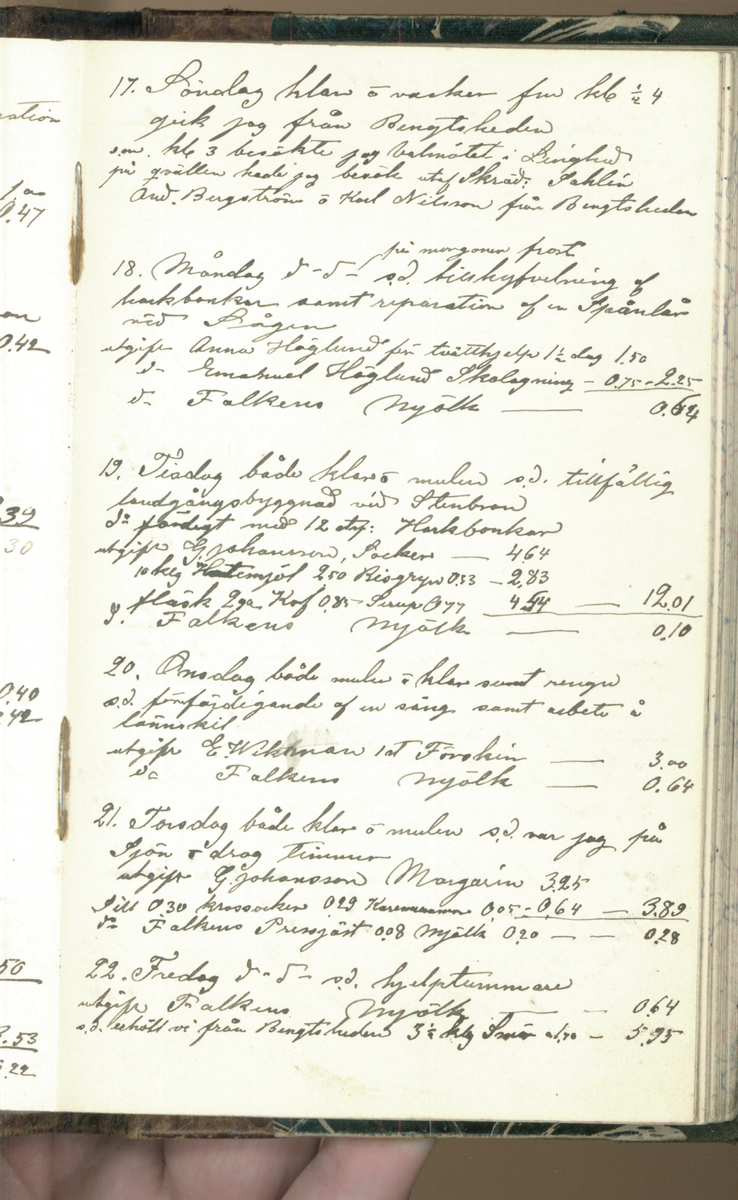 ation
1,00
0.47
0.42
39
30
0.40
.42
50
.53
.22
17. Söndag klar ö vacker fm kl ½ 4
gick jag från Bengtsheden
s.m. kl 3 besökte jag valmötet i Linghed
på qvällen hade jag besök utaf Skräd: Sahlin
And. Bergström ö Karl Nilsson från Bengtsheden
på morgonen frost
18. Måndag d - d - s.d. tillhyfvelning af
harkbonkar samt reparation af en Spånlår
vid Sågen
utgift Anna Höglund för tvätthjelp 1½ dag 1.50
d- Emanuel Höglund Skolagning - 0.75 - 2.25
d- Falkens Mjölk — 0.64
19. Tisdag både klar ö mulen s.d. tillfällig
landgångsbyggnad vid Stenbron
do färdigt med 12 sty: Harkbonkar
utgift G. Johansson, Socker — 4.64
10 klg mjöl 2.50 Risgryn 0.33 - 2.83
fläsk Korf 0.85 Sirup 0.77 4.54 — 12.01
d. Falkens Mjölk — 0.10
20. Onsdag både mulen ö klar samt rengn
s.d. förfärdigande af en säng samt arbete å
utgift E. Wikman 1 st Förskin — 3.00
do Falkens Mjölk — 0.64
21. Torsdag både klar ö mulen s.d. var jag på
Sjön ö drog timmer
utgift G. Johansson Margarin 3.25
Sill 0.30 krossocker 0.29 0.05 - 0.64 — 3.89
do Falkens Pressjäst 0.08 Mjölk 0.20 — — 0.28
22. Fredag d - d - s.d. hjelptummare
utgift Falkens Mjölk — 0.64
s.d. erhöll vi från Bengtsheden 3½ klg Smör a 1.70 — 5.95